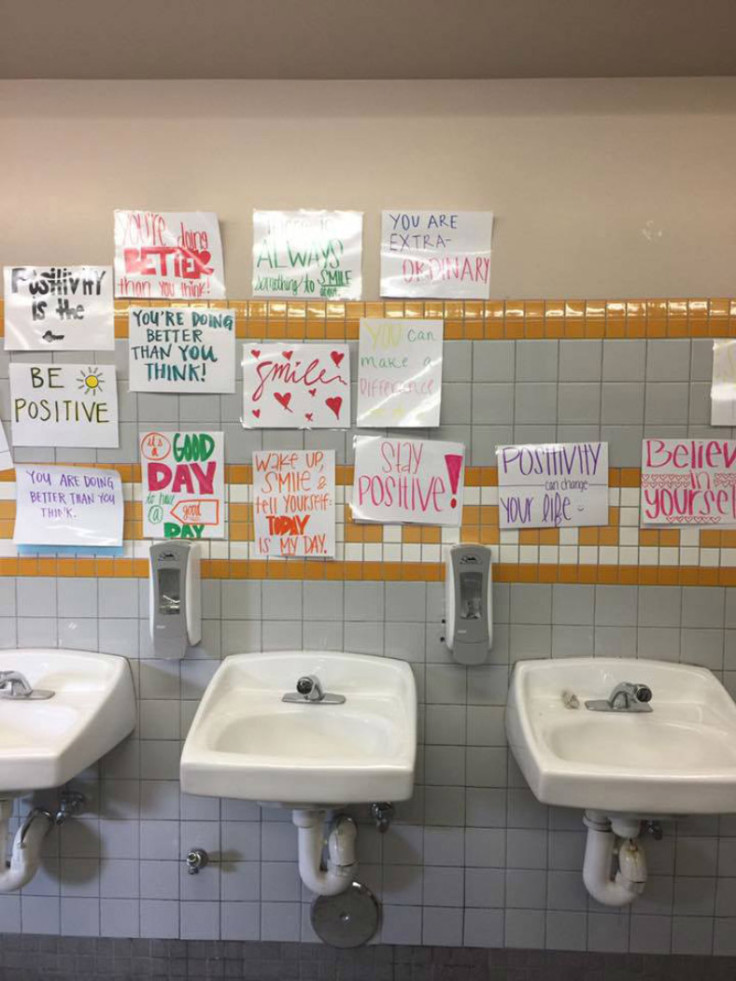 YOU'RE doing
BETTER
than you think!
ALWAYS
Something to SMILE
YOU ARE
EXTRA-
ORDINARY
Positivity
is the
YOU'RE DOING
BETTER
THAN YOU
THINK!
Smile
YOU can
make a
Difference
BE
POSITIVE
it's
a GOOD
DAY
to have
a good
DAY
WAKE UP,
SMILE &
tell yourself:
TODAY
IS MY DAY.
Stay
POSITIVE!
POSITIVITY
can change
YOUR life
Believe
in
yourself
YOU ARE DOING
BETTER THAN YOU
THINK.